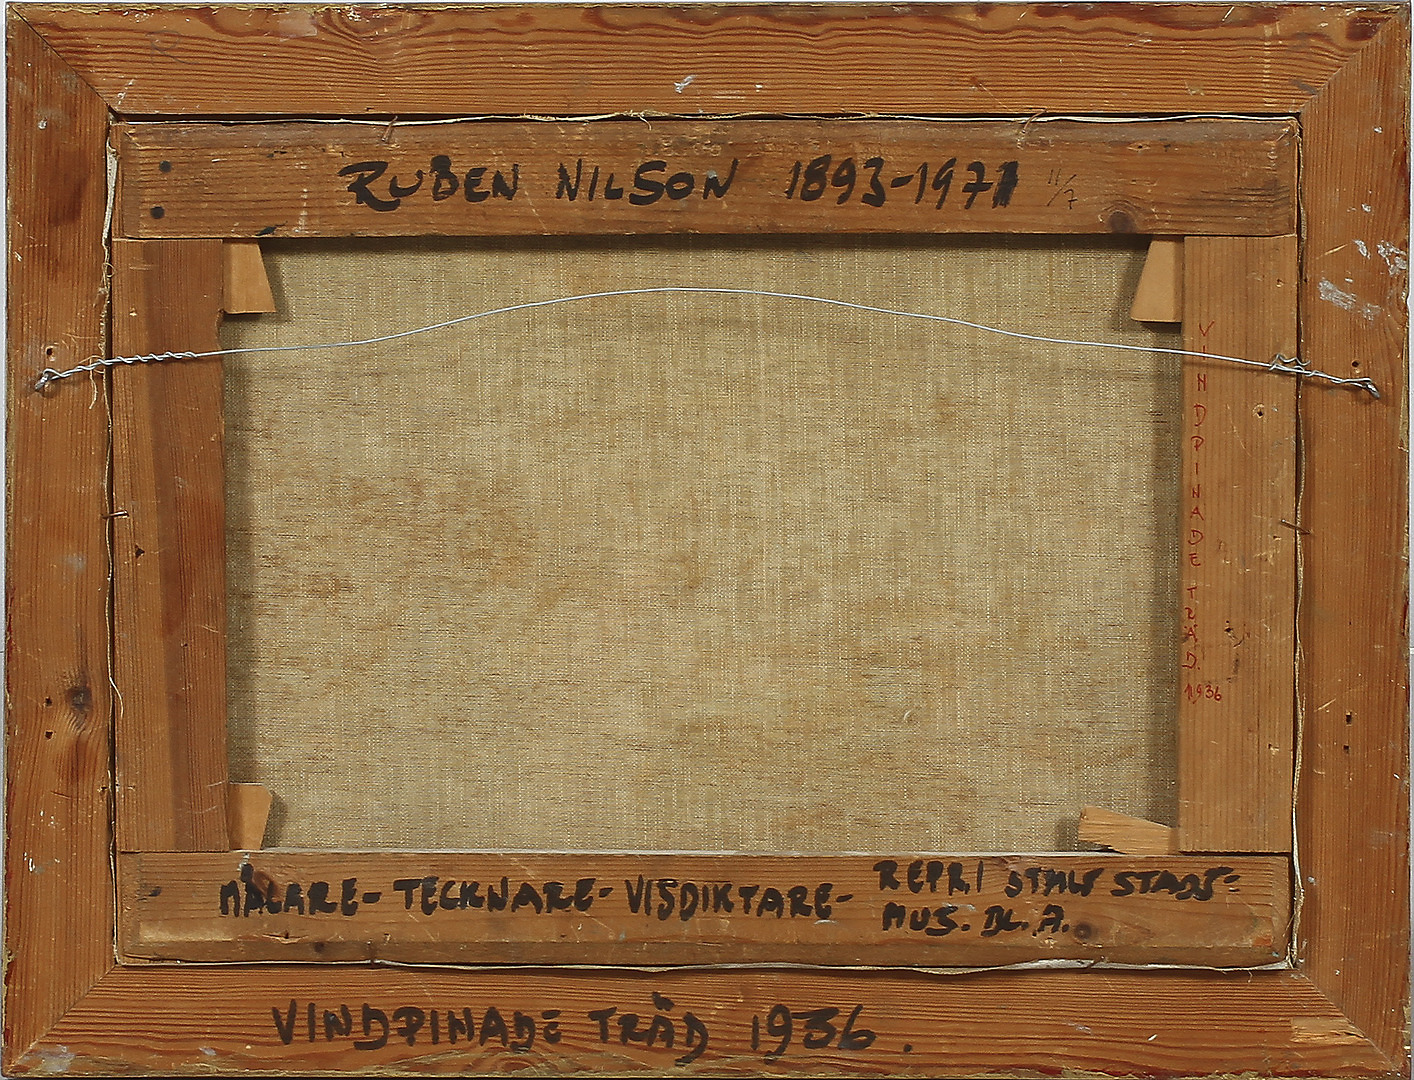 RUBEN NILSON 1893-1971 11/7
VINDPINADE TRÄD. 1936
MÅLARE- TECKNARE- VISDIKTARE- REPR. I STHLS STADS-
MUS. BL. A.
VINDPINADE TRÄD 1936.